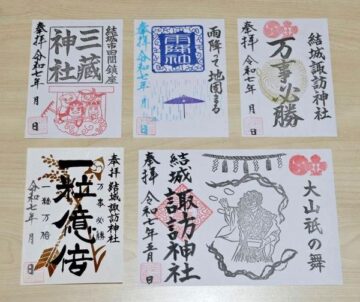 結城市四間鎮座
三蔵神社
奉拝
令和七年 月 日
雨降って地固まる
雨降神
奉拝
令和七年 月 日
結城諏訪神社
万事必勝
奉拝
令和七年 月 日
奉拝 結城諏訪神社
万事必勝
一粒億倍
一粒万倍
令和七年 月 日
大山祇の舞
結城
諏訪神社
奉拝 令和七年五月 日